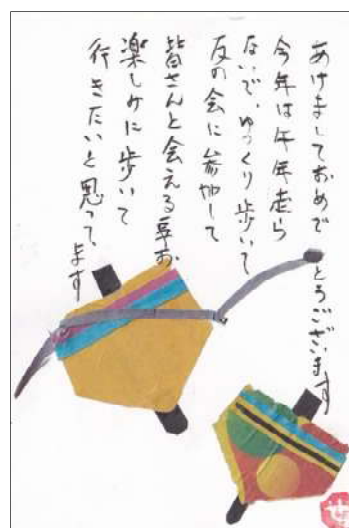 あけましておめで
とうございます
今年は午年走ら
ないで、ゆっくり歩いて
友の会に参加して
皆さんと会える事お
楽しみに歩いて
行きたいと思って
ます
せ